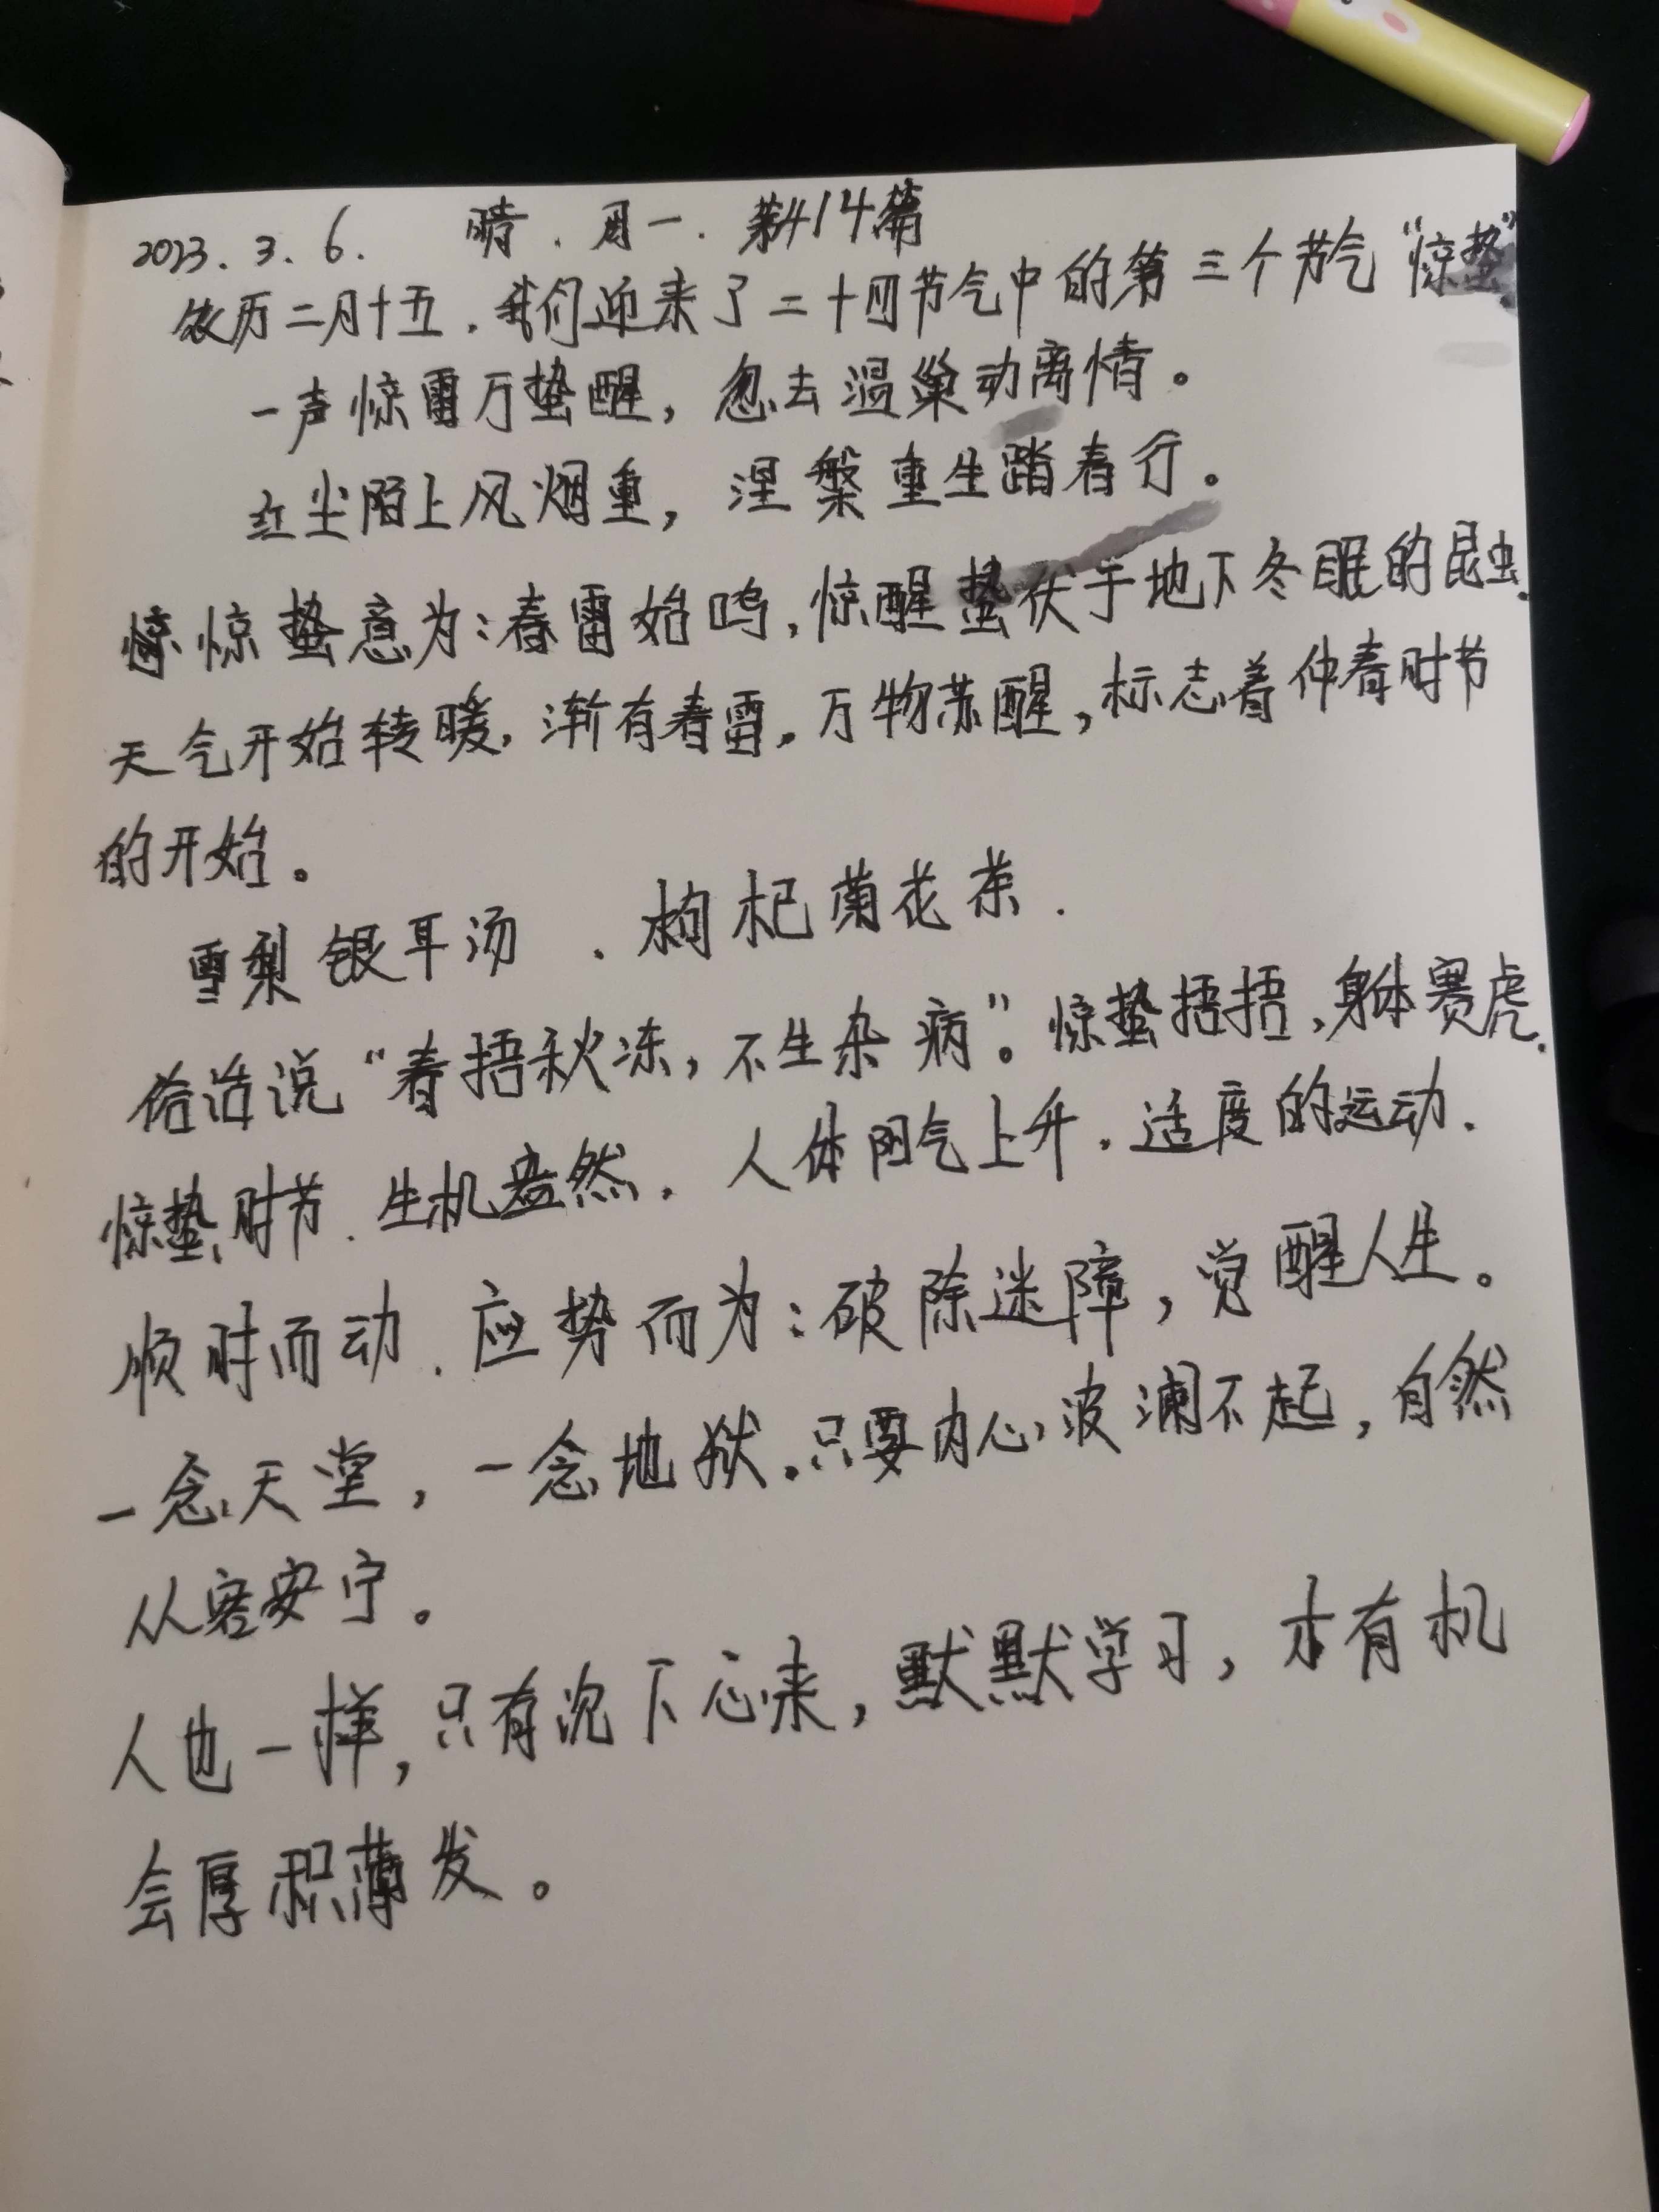 2023.3.6. 晴.周一.第414篇
农历二月十五.我们迎来了二十四节气中的第三个节气“惊蛰”
一声惊雷万蛰醒，忽去温巢动离情。
红尘陌上风烟重，涅槃重生踏春行。
惊惊蛰意为：春雷始鸣,惊醒蛰伏于地下冬眠的昆虫.
天气开始转暖,渐有春雷。万物苏醒,标志着仲春时节
的开始。
雪梨银耳汤.枸杞菊花茶.
俗话说“春捂秋冻,不生杂病”。惊蛰捂捂,身体赛虎.
惊蛰时节.生机盎然.人体阳气上升.适度的运动.
顺时而动.应势而为：破除迷障,觉醒人生。
一念天堂,一念地狱.只要内心波澜不起,自然
从容安宁。
人也一样,只有沉下心来,默默学习,才有机
会厚积薄发。